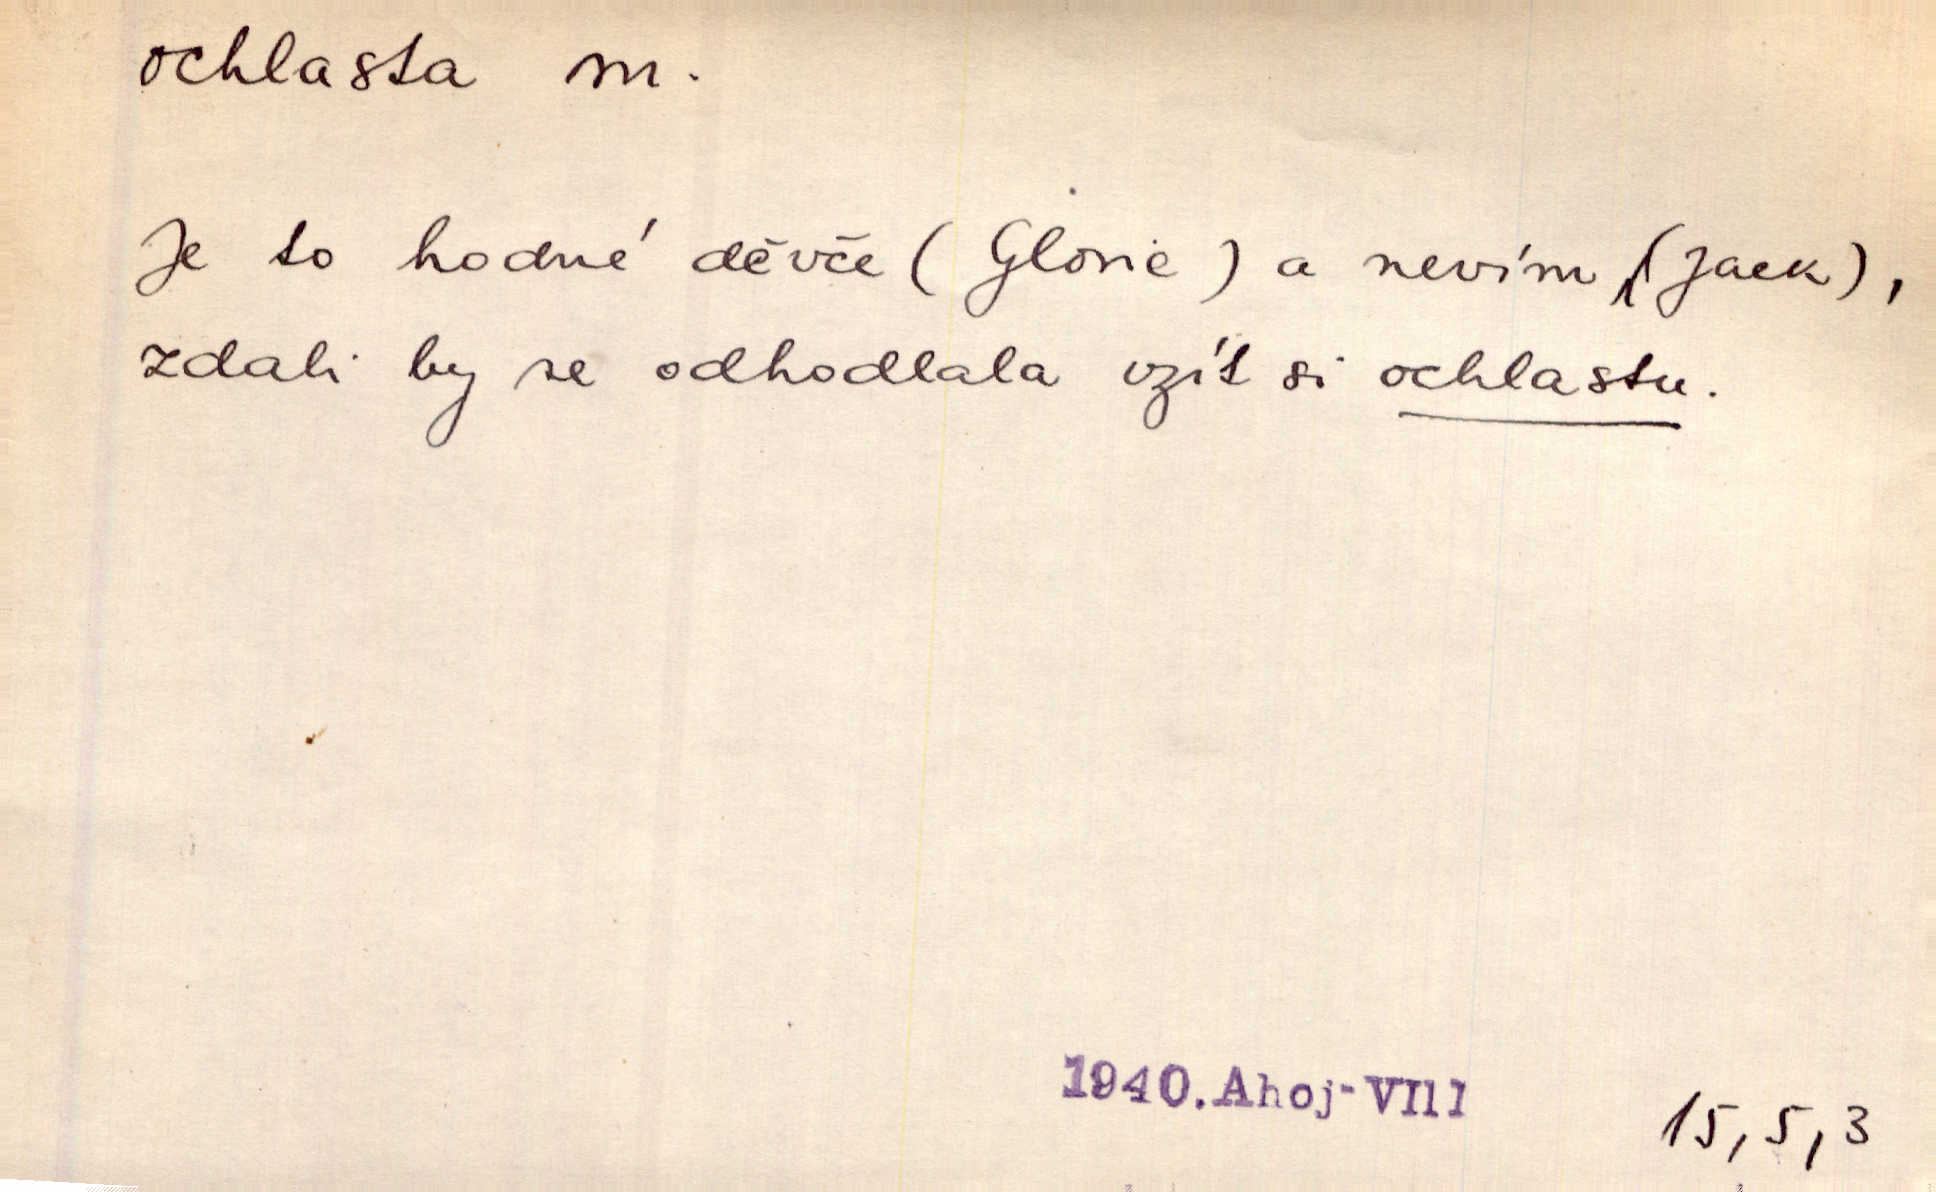 ochlasta m.
Je to hodné děvče (Glorie) a nevím (Jack),
zdali by se odhodlala vzít si ochlastu.
1940. Ahoj-VIII
15,5,3